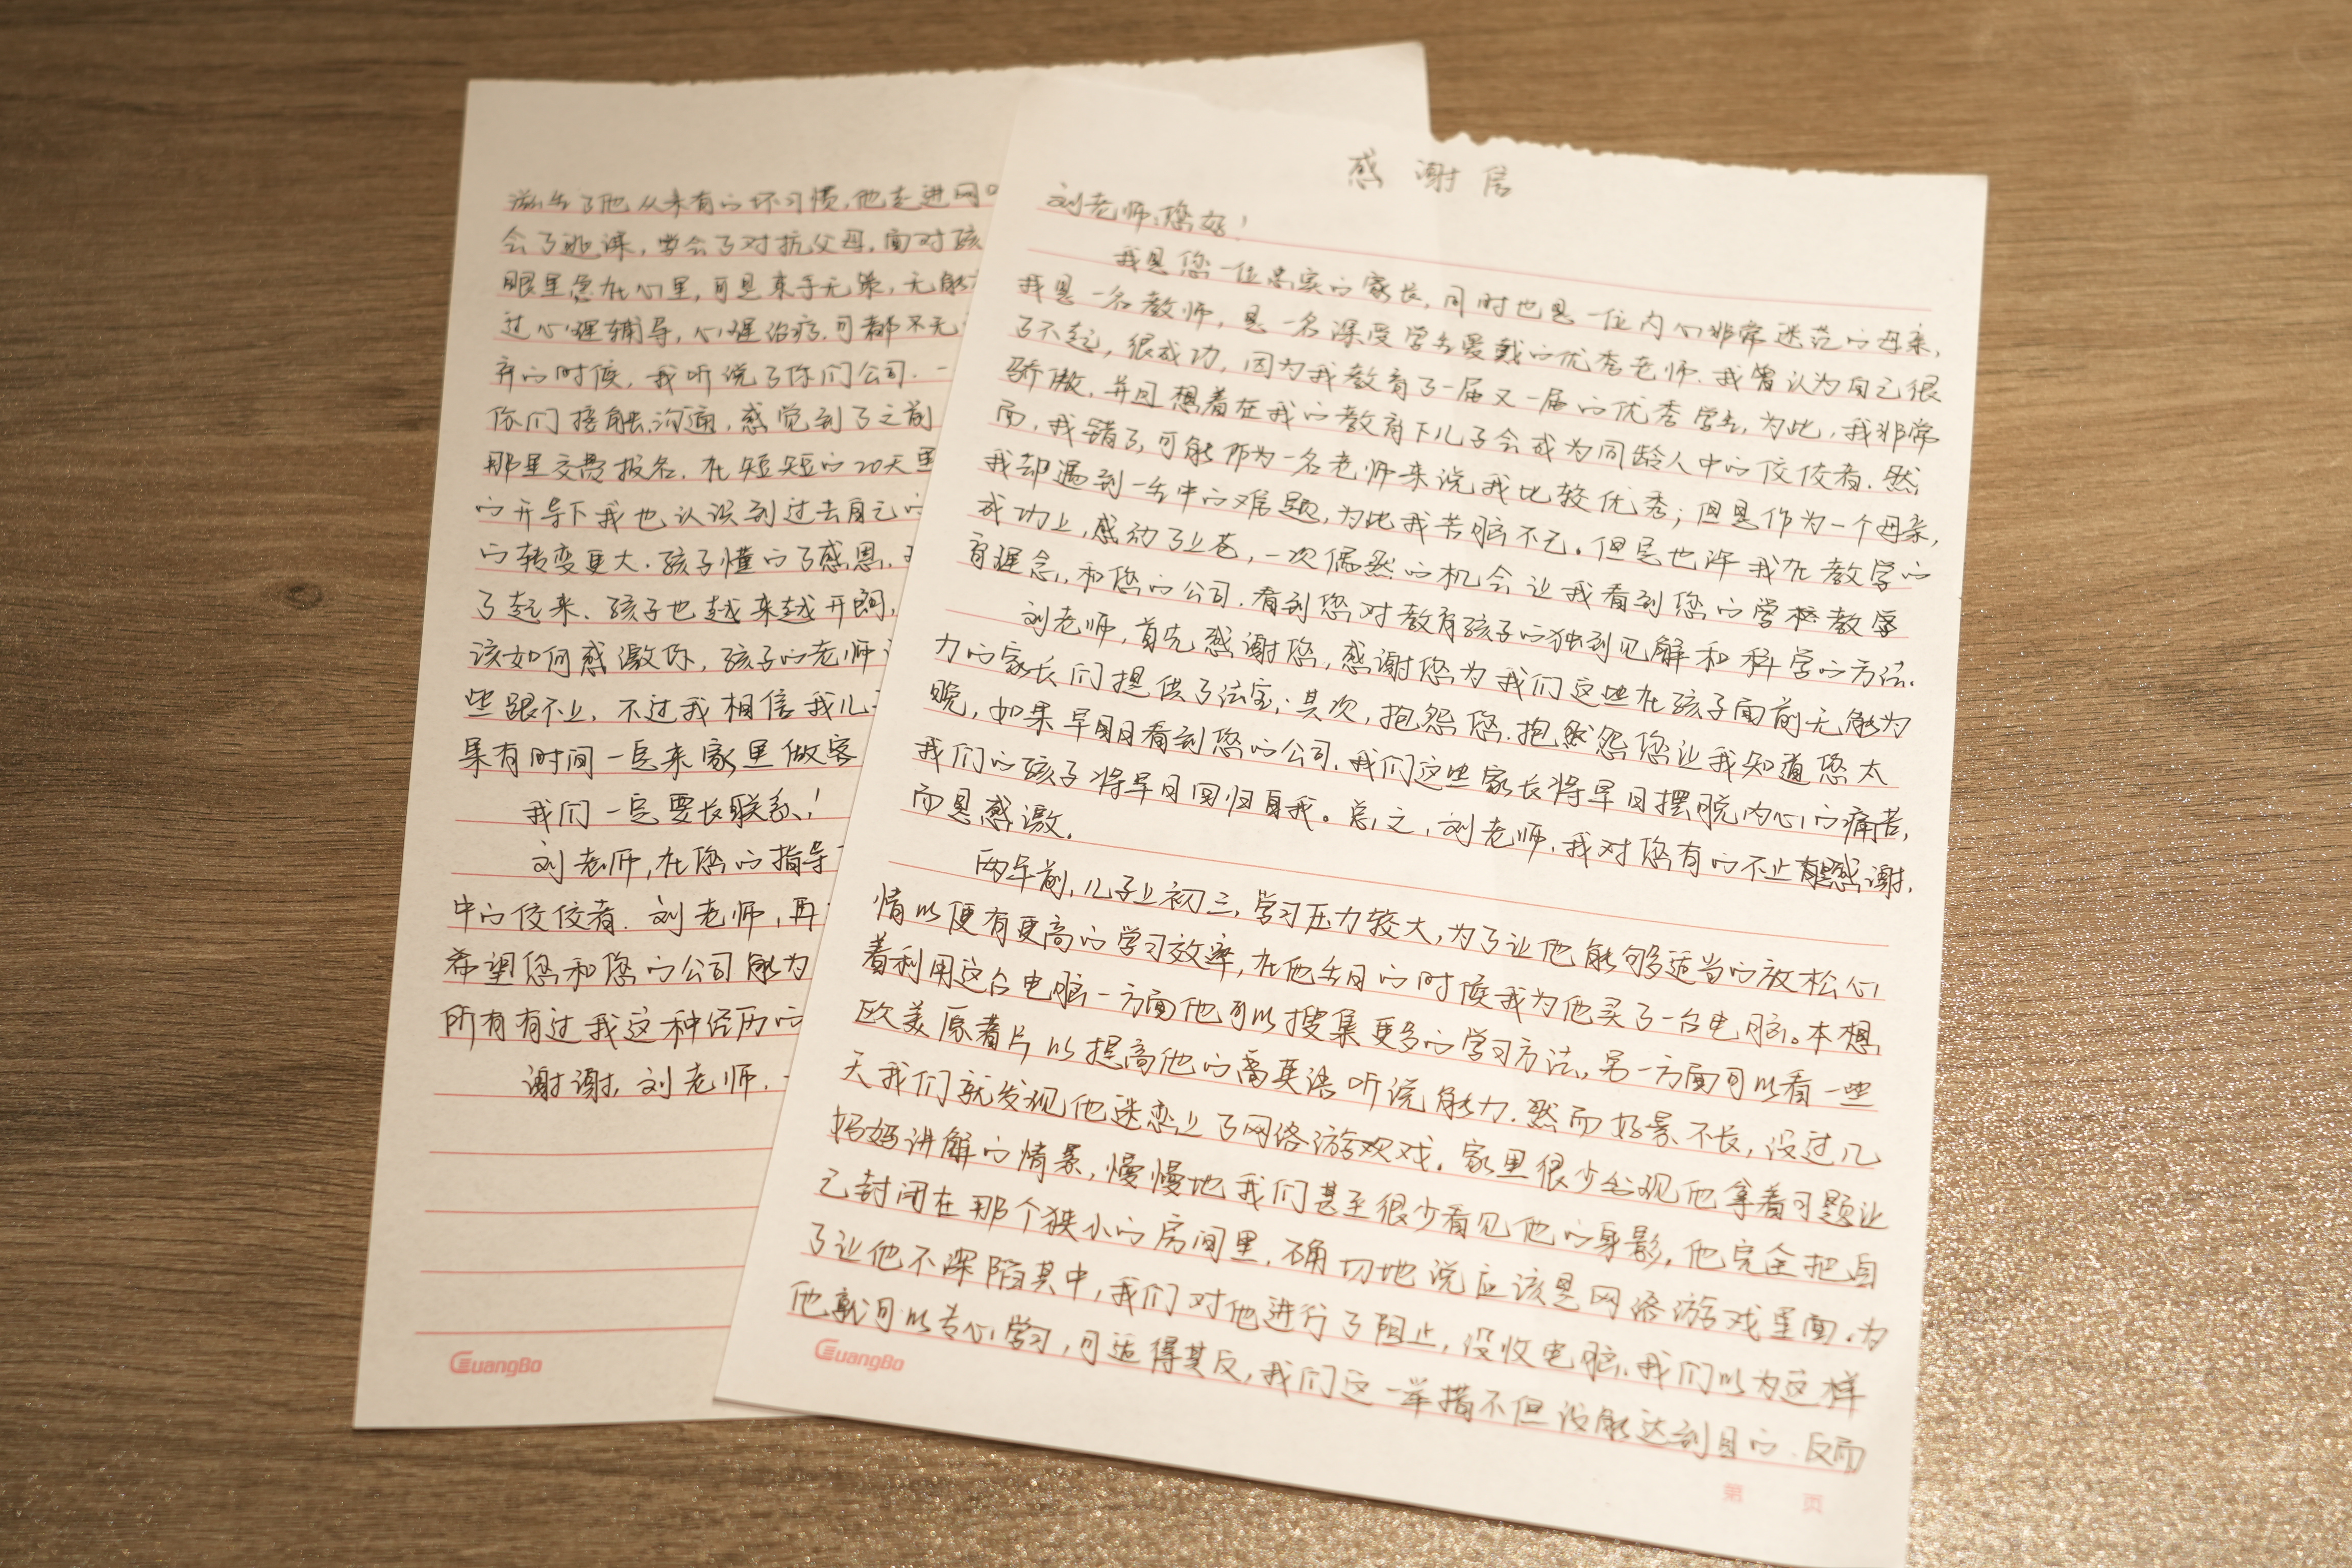 感谢信
刘老师,您好!
我是您一位忠实的家长,同时也是一位内心非常迷茫的母亲,
我是一名教师,是一名深受学生爱戴的优秀老师.我曾认为自己很
了不起,很成功,因为我教育了一届又一届的优秀学生,为此,我非常
骄傲.并且想着在我的教育下儿子会成为同龄人中的佼佼者.然
而,我错了,可能作为一名老师来说我比较优秀;但是作为一个母亲,
我却遇到一生中的难题,为此我苦脑不已。但是也许我在教学的
成功上,感动了上苍,一次偶然的机会让我看到您的学校教学
育理念,和您的公司.看到您对教育孩子的独到见解和科学的方法.
刘老师,首先感谢您,感谢您为我们这些在孩子面前无能为
力的家长们提供了法宝;其次,抱怨您.抱怨您让我知道您太
晚,如果早日看到您的公司.我们这些家长将早日摆脱内心的痛苦,
我们的孩子将早日回归自我。总之,刘老师.我对您有的不止感谢.
而是感激.
两年前,儿子上初三,学习压力较大,为了让他能够适当的放松心
情以便有更高的学习效率,在他生日的时候我为他买了一台电脑。本想
着利用这台电脑一方面他可以搜集更多的学习方法,另一方面可以看一些
欧美原着片以提高他的英语听说能力.然而好景不长,没过几
天我们就发现他迷恋上了网络游戏.家里很少出现他拿着习题让
妈妈讲解的情景,慢慢地我们甚至很少看见他的身影,他完全把自
己封闭在那个狭小的房间里.确切地说应该是网络游戏里面.为
了让他不深陷其中,我们对他进行了阻止,没收电脑.我们以为这样
他就可以专心学习,可适得其反,我们这一举措不但没能达到目的.反而
GuangBo
第 页
滋生了他从未有的坏习惯,他走进网
会了逃课,学会了对抗父母,面对孩
眼里急在心里,可是束手无策,无能
过心理辅导,心理治疗.可都不无
弃的时候,我听说了你们公司.一
你们接触沟通,感觉到了之前
那里交费报名.在短短的20天里
的开导下我也认识到过去自己的
的转变更大.孩子懂的了感恩.
了起来.孩子也越来越开朗,
该如何感激你,孩子的老师
些跟不上,不过我相信我儿
果有时间一定来家里做客
我们一定要长联系!
刘老师,在您的指导
中的佼佼者.刘老师,再
希望您和您的公司能为
所有有过我这种经历的
谢谢,刘老师.
GuangBo